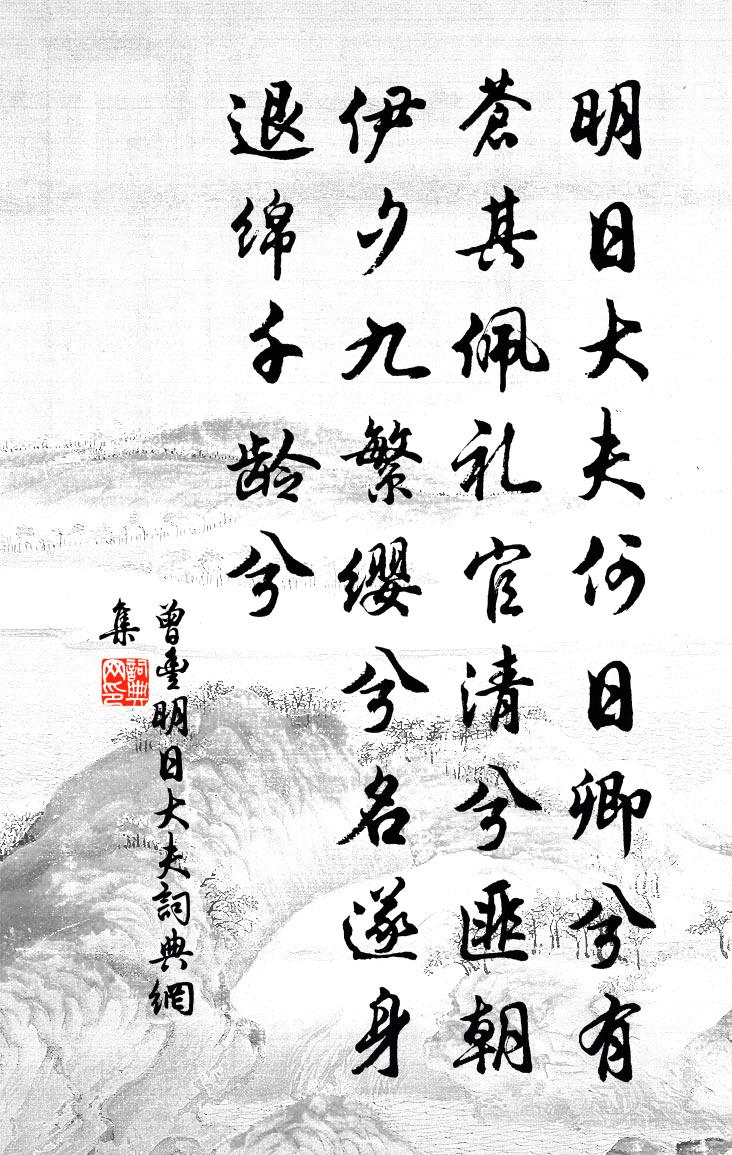 明日大夫何日卿兮有
蒼其佩礼官清兮匪朝
伊夕九繁缨兮名遂身
退绵千龄兮
曾豐明日大夫詞典網
集
詞典
网印